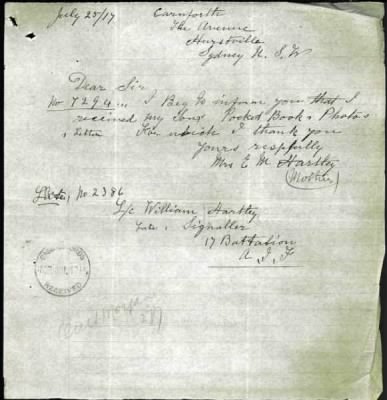 July 25/17
Carnforth
The Avenue
Hurstville
Sydney N. S. W
Dear Sir
No 7294... I Beg to inform you that I
received my Sons Pocket Book & Photos
& Letters For which I thank you
Yours respfully
Mrs E M Hartley
(Mother)
No 2386
L/c William Hartley
Late, Signaller
17 Battalion
A. I. F
RECEIVED